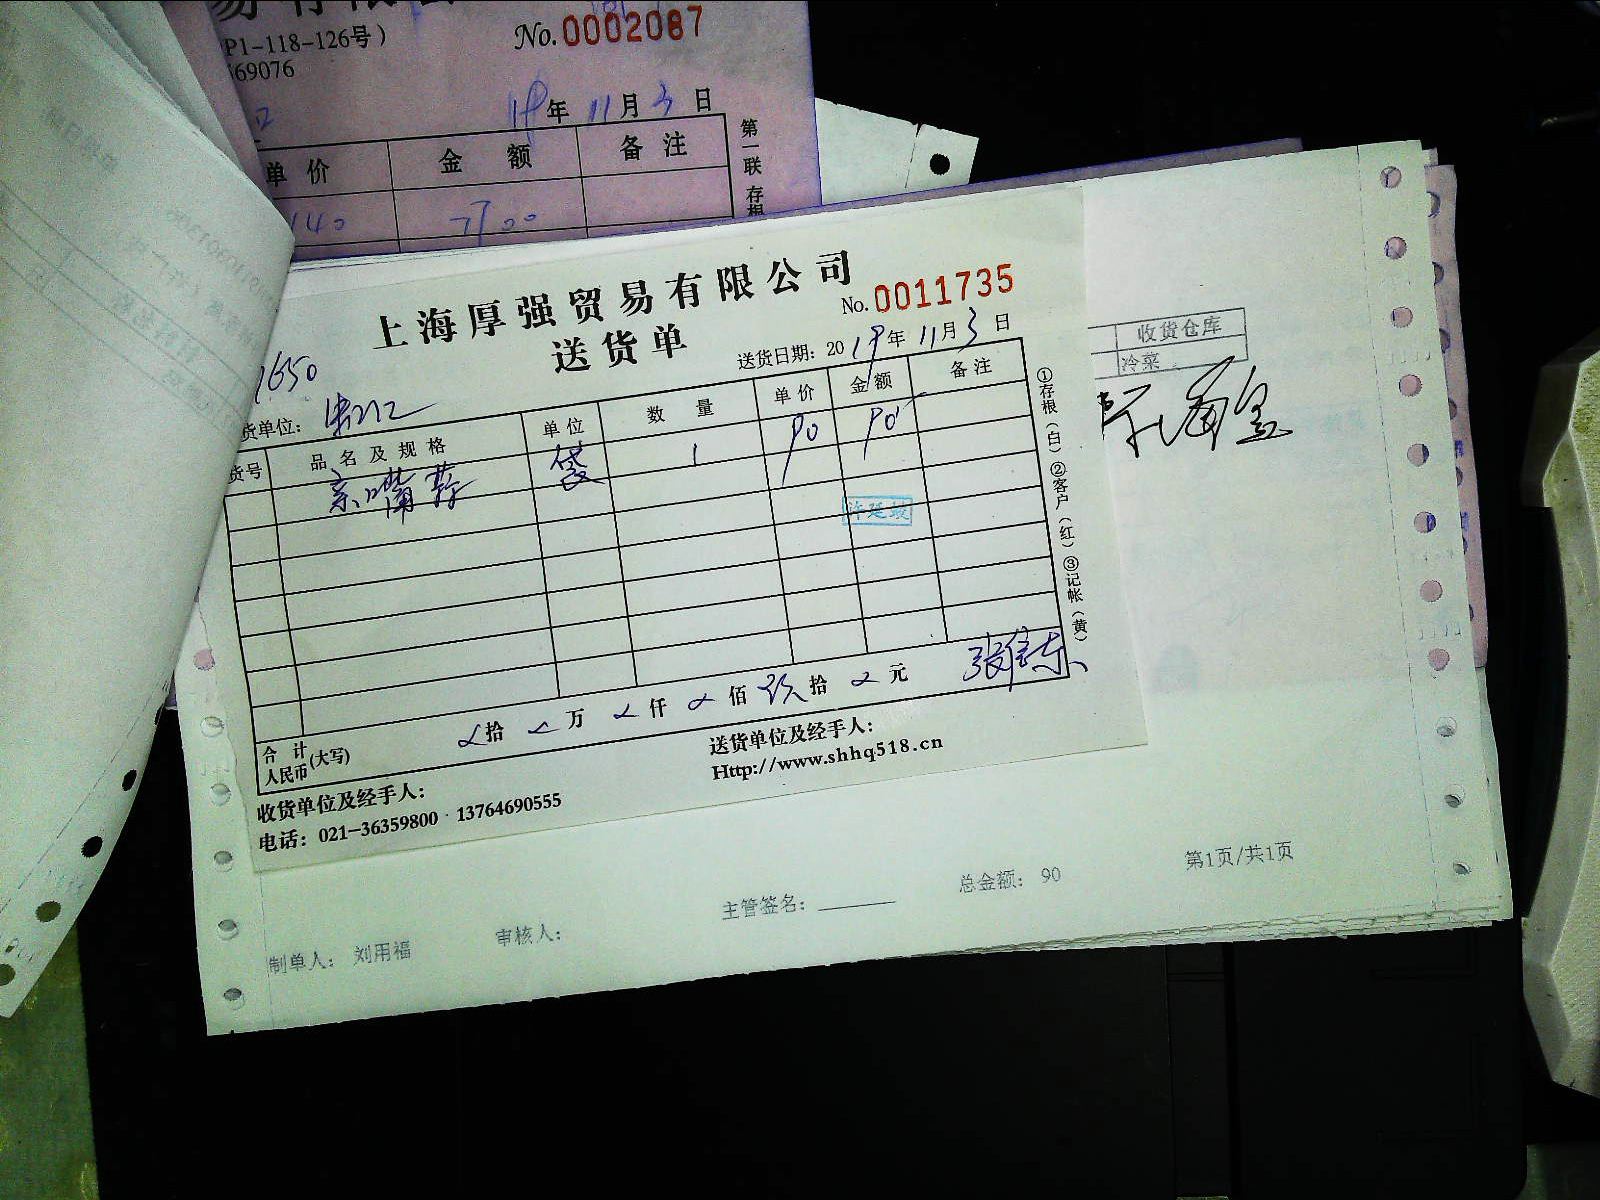 易有限公
P1-118-126号）
No.0002087
69076
19年11月3日
单价 金额 备注
第一联 存根
140 7700
上海厚强贸易有限公司
No.0011735
送货单
送货日期：2019年11月3日
1650
货单位：
货号 品名及规格 单位 数量 单价 金额 备注
袋 1 90 90
许廷蛟
①存根（白）②客户（红）③记帐（黄）
合计人民币(大写) 拾 万 仟 佰 玖拾 元
张信东
收货单位及经手人：
送货单位及经手人：
电话：021-36359800 13764690555
Http://www.shhq518.cn
收货仓库
冷菜
制单人： 刘用福
审核人：
主管签名：
总金额： 90
第1页/共1页